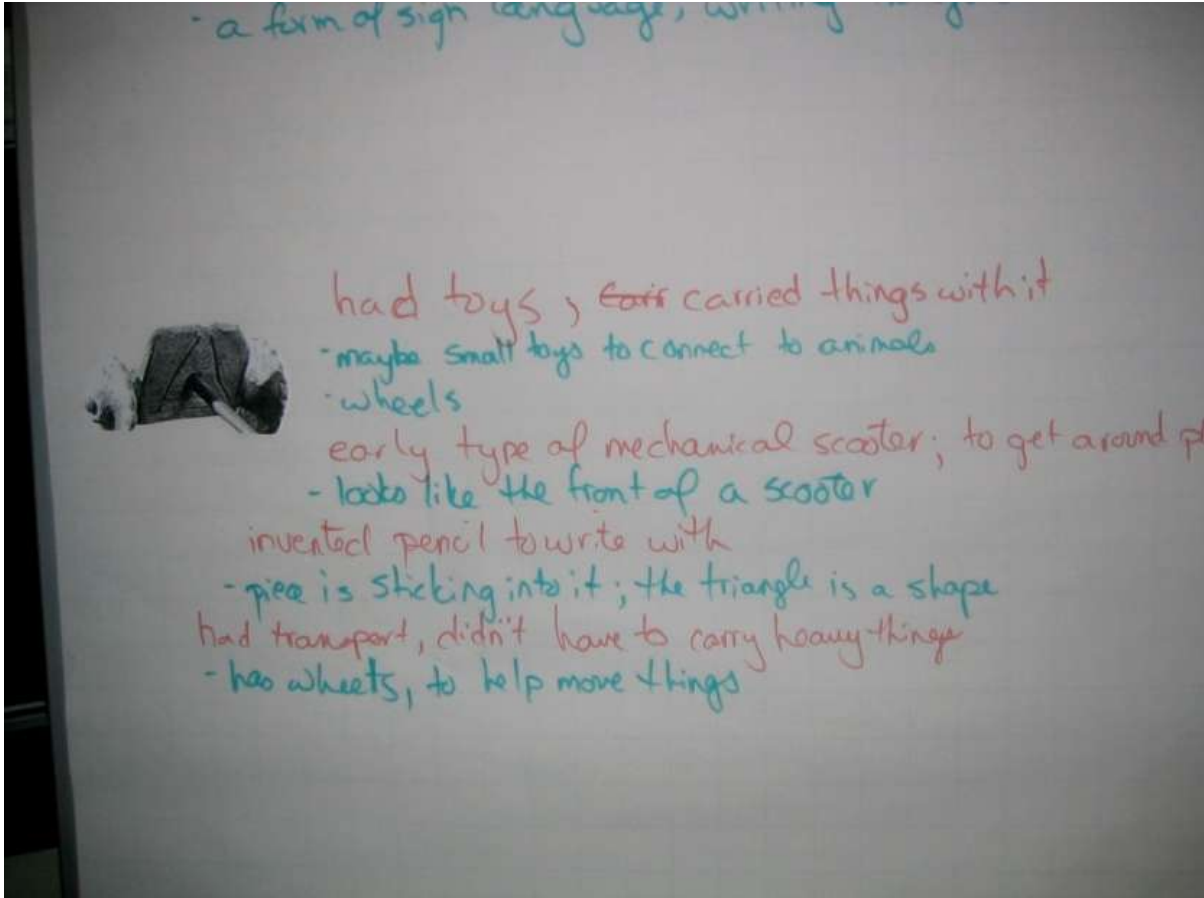 - a form of sign language, writing
had toys, carried things with it
- maybe small toys to connect to animals
- wheels
early type of mechanical scooter; to get around
- looks like the front of a scooter
invented pencil to write with
- piece is sticking into it; the triangle is a shape
had transport, didn't have to carry heavy things
- has wheels, to help move things